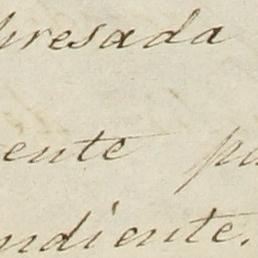 presada
ente pa
ndiente.